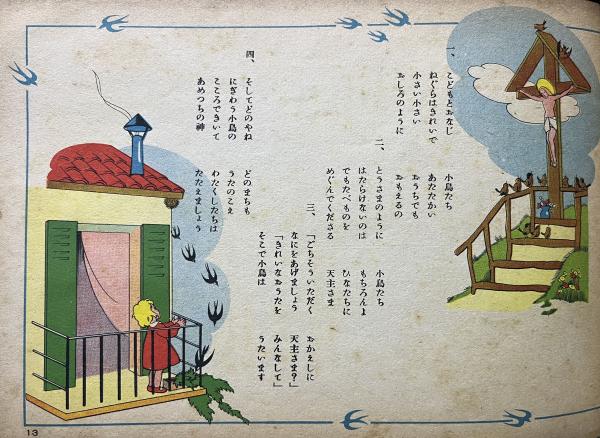 一、
こどもとおなじ
ねぐらはきれいで
小さい小さい
おしろのように
小鳥たち
あたたかい
おうちでも
おもえるの
二、
とうさまのように
はたらけないのは
でもたべものを
めぐんでくださる
小鳥たち
もちろんよ
ひなたちに
天主さま
三、
「ごちそういただく
なにをあげましょう
「きれいなおうたを
そこで小鳥は
おかえしに
天主さま?」
みんなして」
うたいます
四、
そしてどのやね
にぎわう小鳥の
こころできいて
あめつちの神
どのまちも
うたのこえ
わたくしたちは
たたえましょう
13